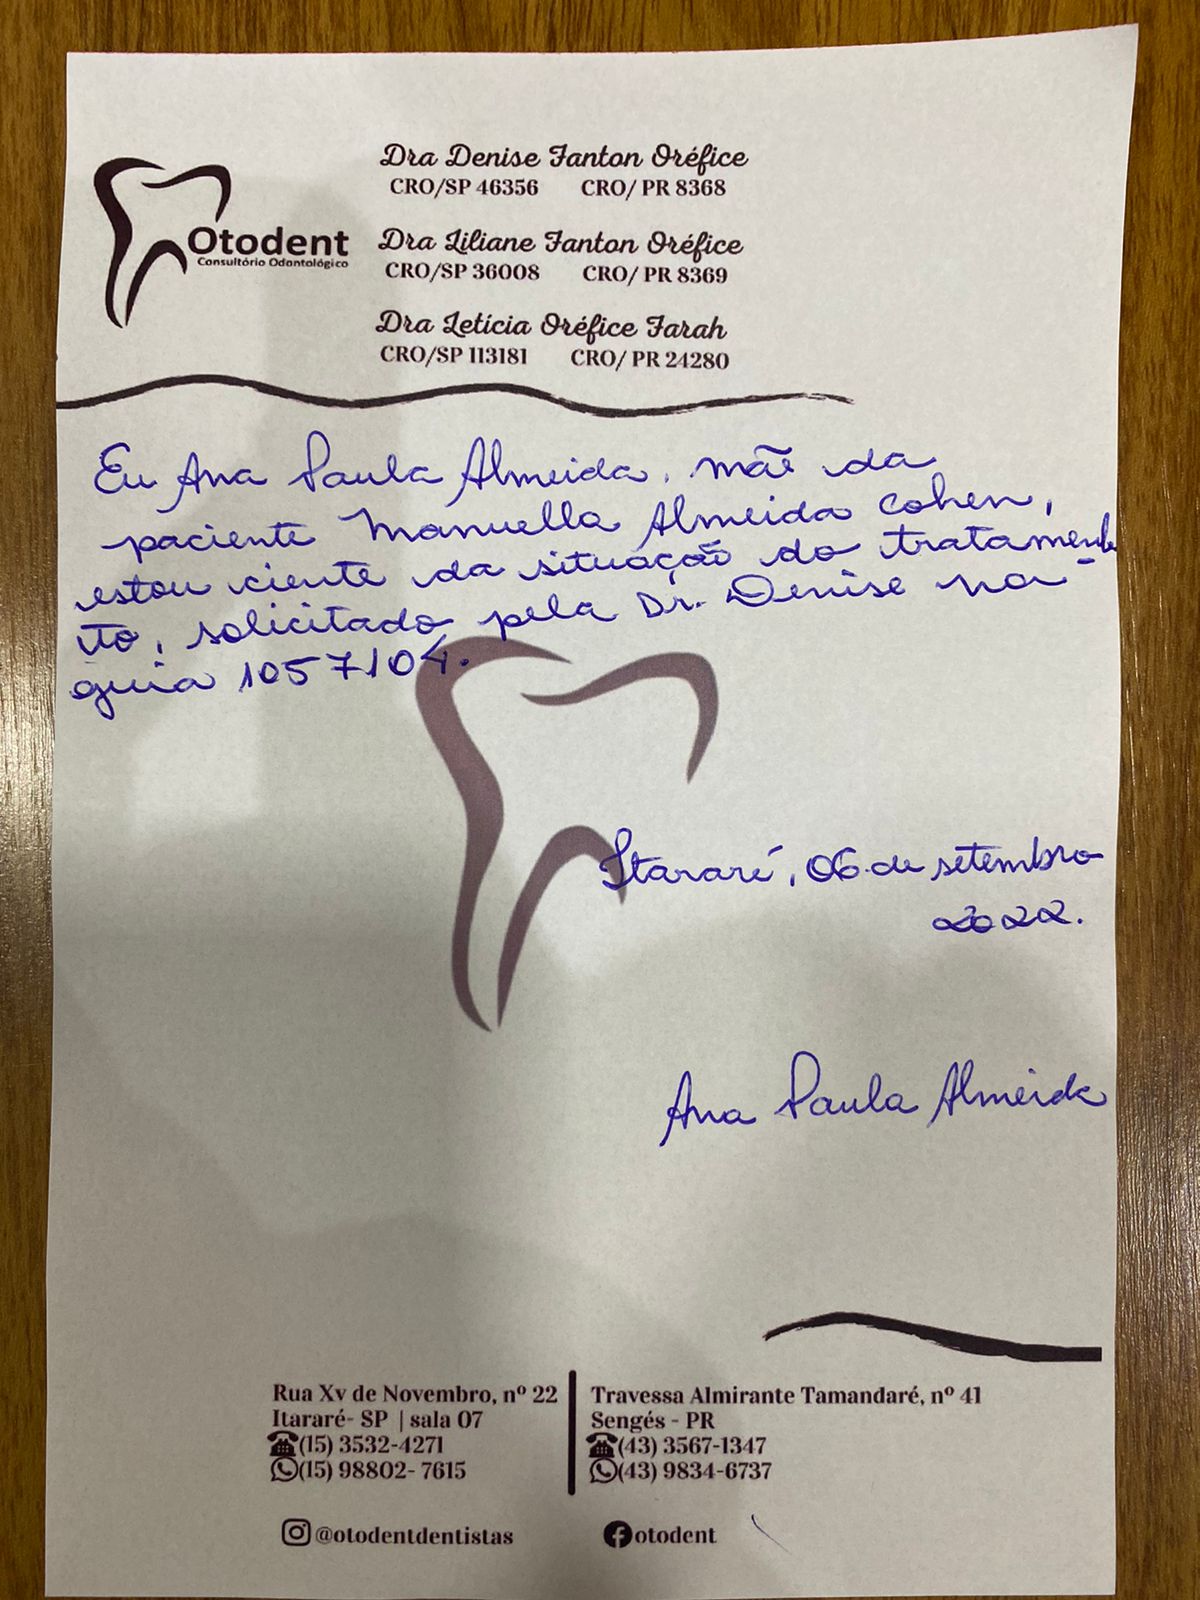 Otodent
Consultório Odontológico
Dra Denise Fanton Oréfice
CRO/SP 46356 CRO/ PR 8368
Dra Liliane Fanton Oréfice
CRO/SP 36008 CRO/ PR 8369
Dra Letícia Oréfice Farah
CRO/SP 113181 CRO/ PR 24280
Eu Ana Paula Almeida, mãe da
paciente Manuella Almeida Cohen,
estou ciente da situação do tratamento
to, solicitado pela Dr. Denise na
guia 1057104.
Itararé, 06 de setembro
2022.
Ana Paula Almeida
Rua Xv de Novembro, nº 22
Itararé- SP | sala 07
(15) 3532-4271
(15) 98802- 7615
Travessa Almirante Tamandaré, nº 41
Sengés - PR
(43) 3567-1347
(43) 9834-6737
@otodentdentistas
otodent